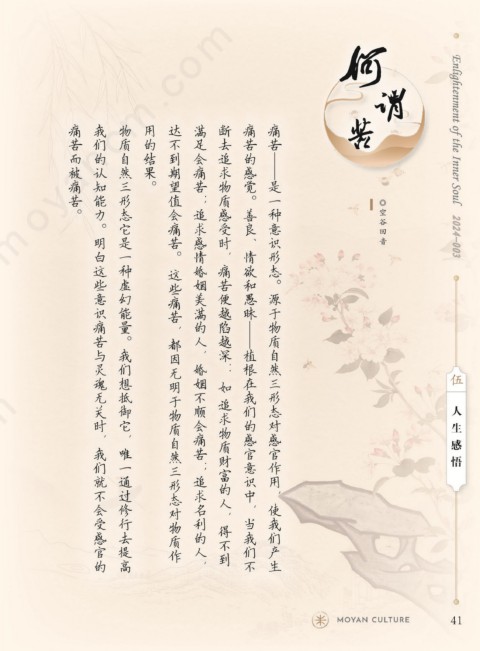 何谓苦
◎空谷回音
痛苦——是一种意识形态。源于物质自然三形态对感官作用，使我们产生
痛苦的感觉。善良、情欲和愚昧——植根在我们的感官意识中，当我们不
断去追求物质感受时，痛苦便越陷越深；如追求物质财富的人，得不到
满足会痛苦；追求感情婚姻美满的人，婚姻不顺会痛苦；追求名利的人，
达不到期望值会痛苦。这些痛苦，都因无明于物质自然三形态对物质作
用的结果。
物质自然三形态它是一种虚幻能量。我们想抵御它，唯一通过修行去提高
我们的认知能力。明白这些意识痛苦与灵魂无关时，我们就不会受感官的
痛苦而被痛苦。
Enlightenment of the Inner Soul 2024-003
伍
人生感悟
MOYAN CULTURE
41